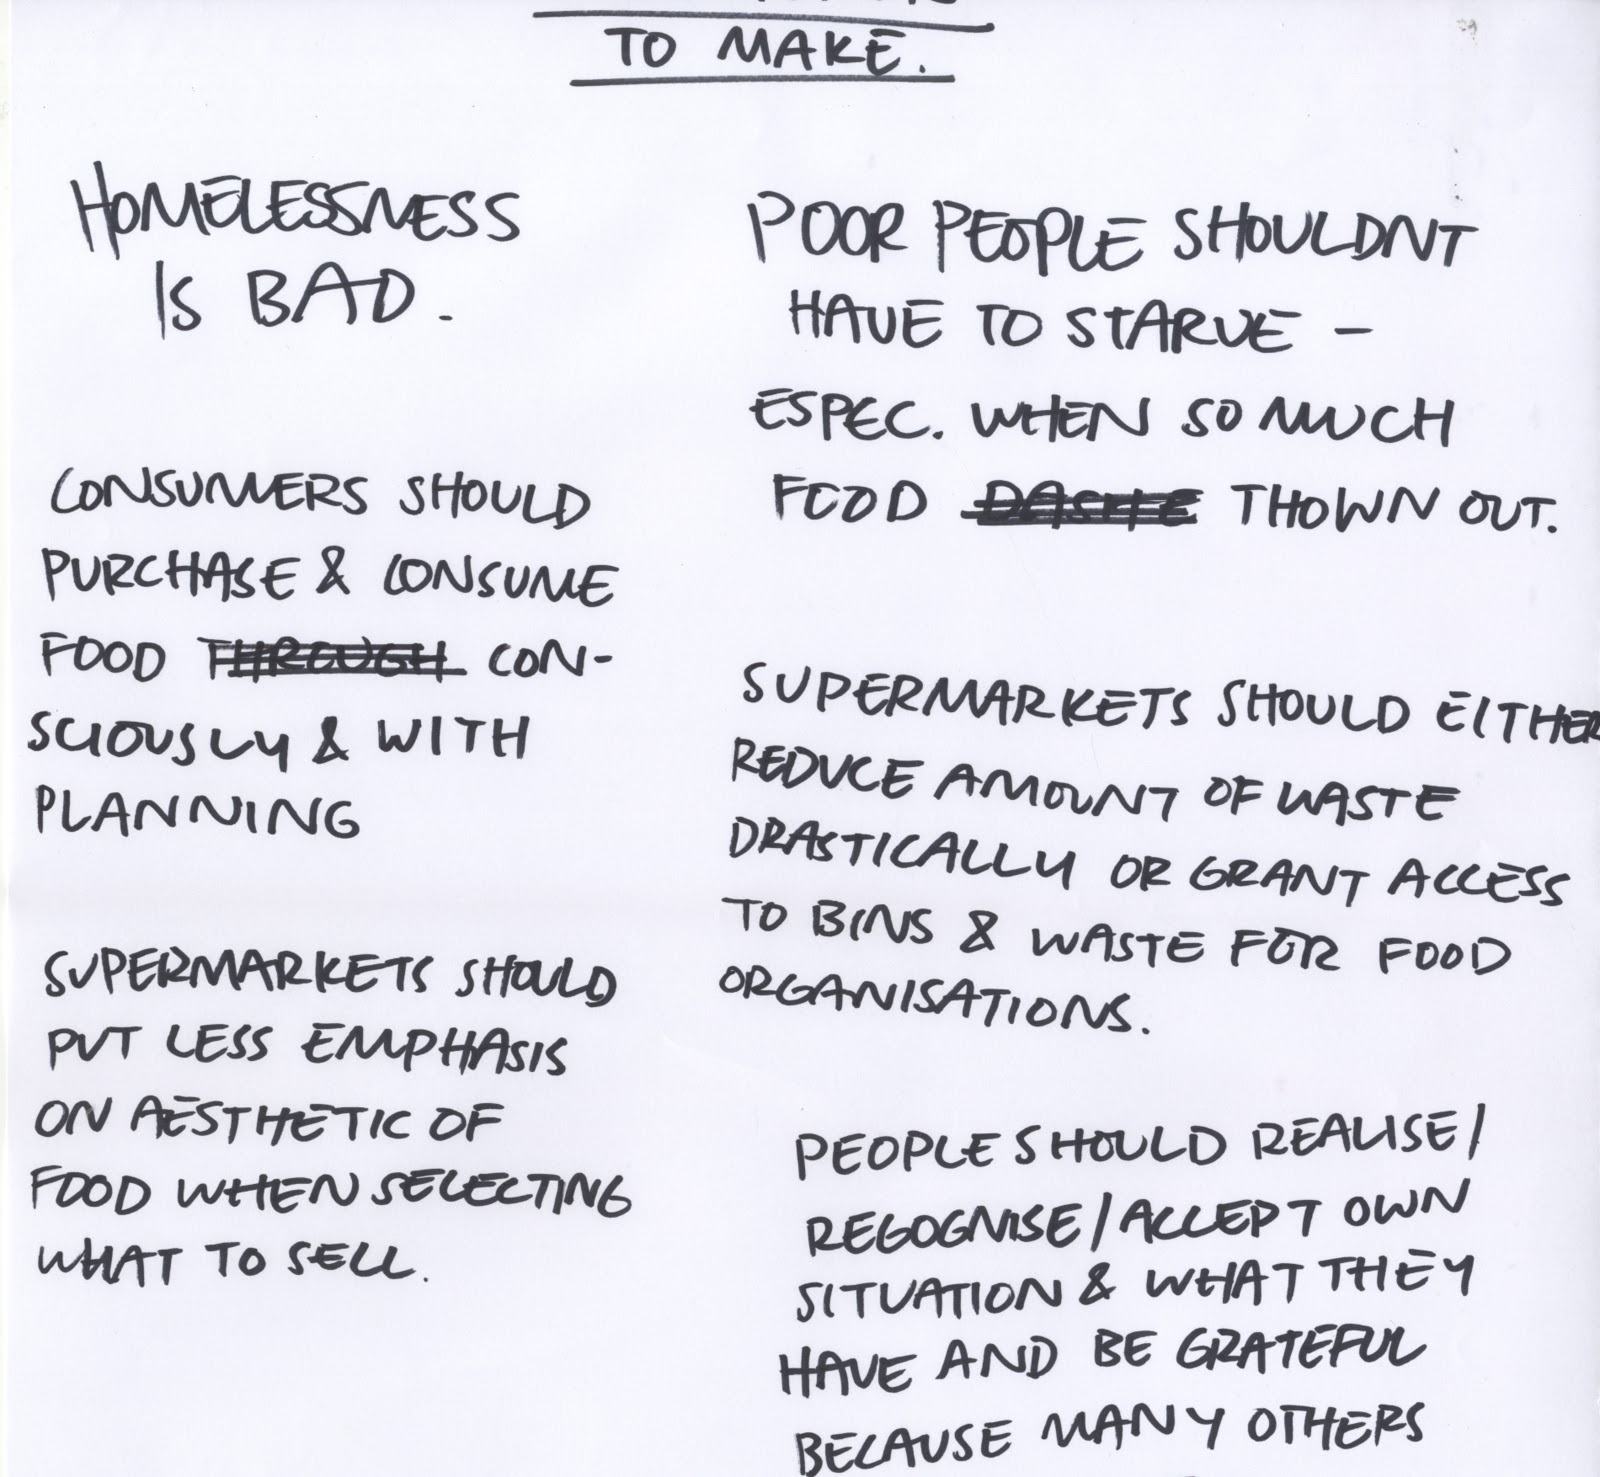 TO MAKE.
HOMELESSNESS
IS BAD.
CONSUMERS SHOULD
PURCHASE & CONSUME
FOOD THROUGH CON-
SCIOUSLY & WITH
PLANNING
SUPERMARKETS SHOULD
PUT LESS EMPHASIS
ON AESTHETIC OF
FOOD WHEN SELECTING
WHAT TO SELL.
POOR PEOPLE SHOULDNT
HAVE TO STARVE -
ESPEC. WHEN SO MUCH
FOOD THOWN OUT.
SUPERMARKETS SHOULD EITHER
REDUCE AMOUNT OF WASTE
DRASTICALLY OR GRANT ACCESS
TO BINS & WASTE FOR FOOD
ORGANISATIONS.
PEOPLE SHOULD REALISE/
REGOGNISE/ACCEPT OWN
SITUATION & WHAT THEY
HAVE AND BE GRATEFUL
BECAUSE MANY OTHERS